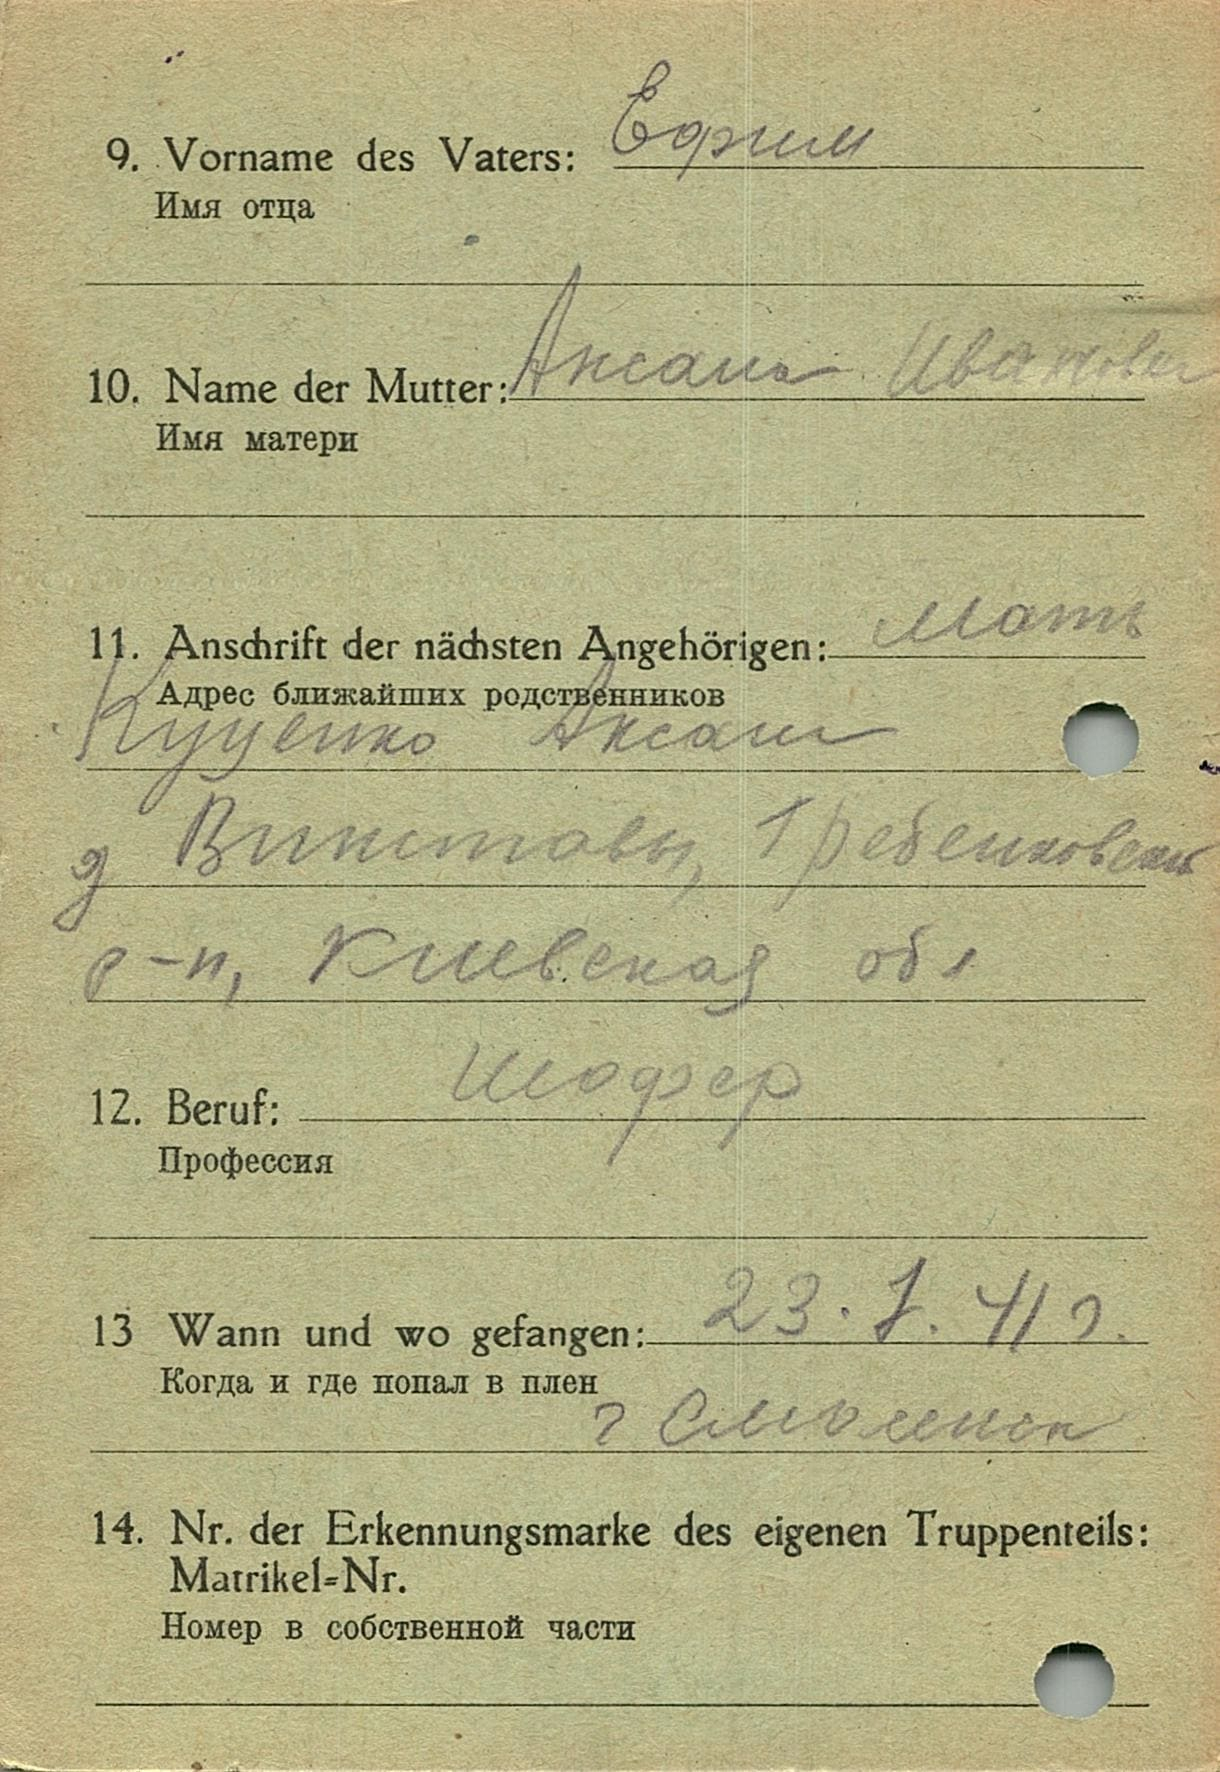 9. Vorname des Vaters: Ефим
Имя отца
10. Name der Mutter: Аксаны Ивановы
Имя матери
11. Anschrift der nächsten Angehörigen: мать
Адрес ближайших родственников
Куценко Аксаны
д Винставы, Гребенковский
р-н, Киевская обл
12. Beruf: шофер
Профессия
13 Wann und wo gefangen: 23. 7. 41 г.
Когда и где попал в плен
г Смоленск
14. Nr. der Erkennungsmarke des eigenen Truppenteils:
Matrikel=Nr.
Номер в собственной части